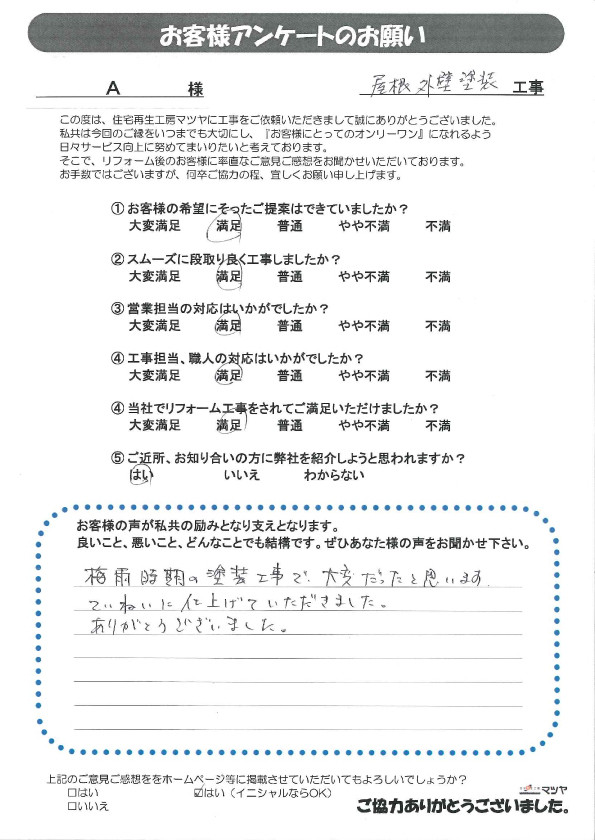 お客様アンケートのお願い
A 様 屋根外壁塗装 工事
この度は、住宅再生工房マツヤに工事をご依頼いただきまして誠にありがとうございました。
私共は今回のご縁をいつまでも大切にし、『お客様にとってのオンリーワン』になれるよう
日々サービス向上に努めてまいりたいと考えております。
そこで、リフォーム後のお客様に率直なご意見ご感想をお聞かせいただいております。
お手数ではございますが、何卒ご協力の程、宜しくお願い申し上げます。
① お客様の希望にそったご提案はできていましたか？
大変満足 満足 普通 やや不満 不満
② スムーズに段取り良く工事しましたか？
大変満足 満足 普通 やや不満 不満
③ 営業担当の対応はいかがでしたか？
大変満足 満足 普通 やや不満 不満
④ 工事担当、職人の対応はいかがでしたか？
大変満足 満足 普通 やや不満 不満
④ 当社でリフォーム工事をされてご満足いただけましたか？
大変満足 満足 普通 やや不満 不満
⑤ ご近所、お知り合いの方に弊社を紹介しようと思われますか？
はい いいえ わからない
お客様の声が私共の励みとなり支えとなります。
良いこと、悪いこと、どんなことでも結構です。ぜひあなた様の声をお聞かせ下さい。
梅雨時期の塗装工事で、大変だったと思います。
ていねいに仕上げていただきました。
ありがとうございました。
上記のご意見ご感想ををホームページ等に掲載させていただいてもよろしいでしょうか？
□はい ☑はい（イニシャルならOK）
□いいえ
マツヤ
ご協力ありがとうございました。